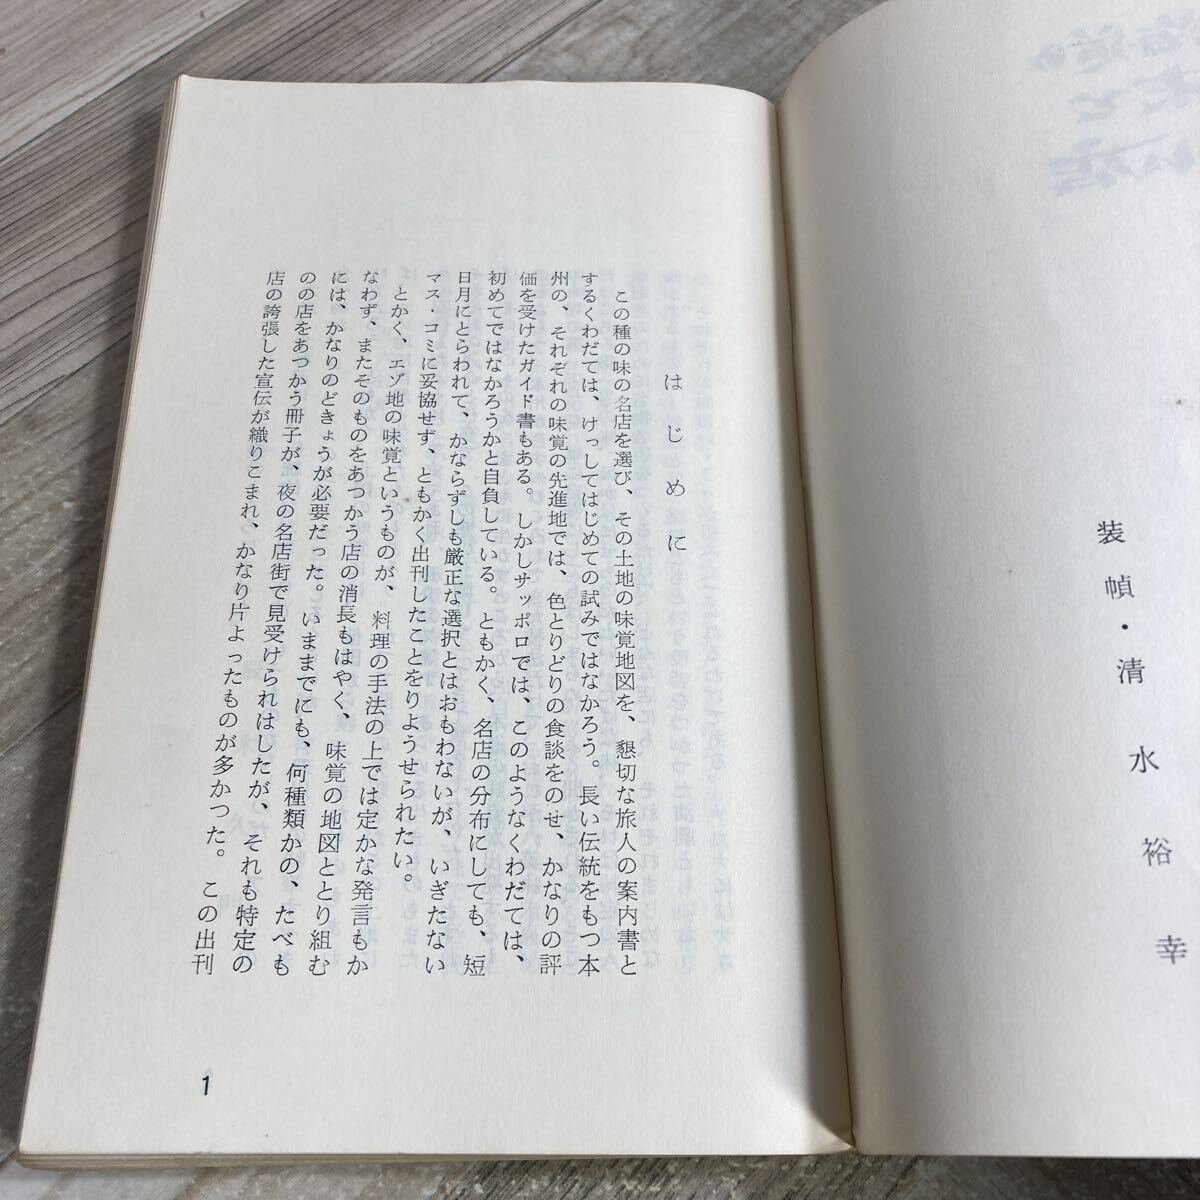 装幀・清水裕幸
はじめに
この種の味の名店を選び、その土地の味覚地図を、懇切な旅人の案内書と
するくわだては、けっしてはじめての試みではなかろう。長い伝統をもつ本
州の、それぞれの味覚の先進地では、色とりどりの食談をのせ、かなりの評
価を受けたガイド書もある。しかしサッポロでは、このようなくわだては、
初めてではなかろうかと自負している。ともかく、名店の分布にしても、短
日月にとらわれて、かならずしも厳正な選択とはおもわないが、いぎたない
マス・コミに妥協せず、ともかく出刊したことをりようせられたい。
とかく、エゾ地の味覚というものが、料理の手法の上では定かな発言もか
なわず、またそのものをあつかう店の消長もはやく、味覚の地図ととり組む
には、かなりのどきょうが必要だった。いままでにも、何種類かの、たべも
のの店をあつかう冊子が、夜の名店街で見受けられはしたが、それも特定の
店の誇張した宣伝が織りこまれ、かなり片よったものが多かった。この出刊
1